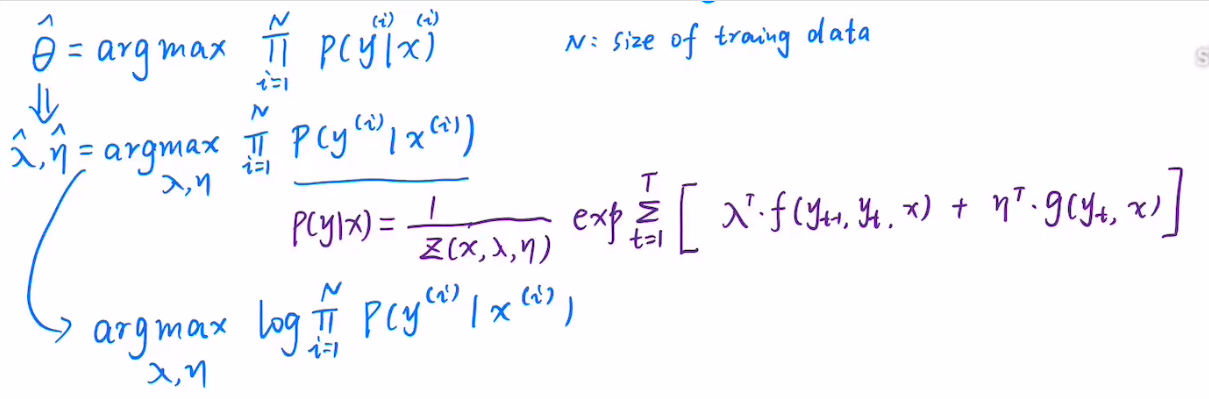 θ̂ = argmax ∏_{i=1}^{N} P(y^{(i)}|x^{(i)}) N: size of traing data
⇓
λ̂, η̂ = argmax_{λ,η} ∏_{i=1}^{N} P(y^{(i)}|x^{(i)})
P(y|x) = 1/Z(x,λ,η) exp ∑_{t=1}^{T} [ λ^T·f(y_{t-1}, y_t, x) + η^T·g(y_t, x) ]
→ argmax_{λ,η} log ∏_{i=1}^{N} P(y^{(i)}|x^{(i)})